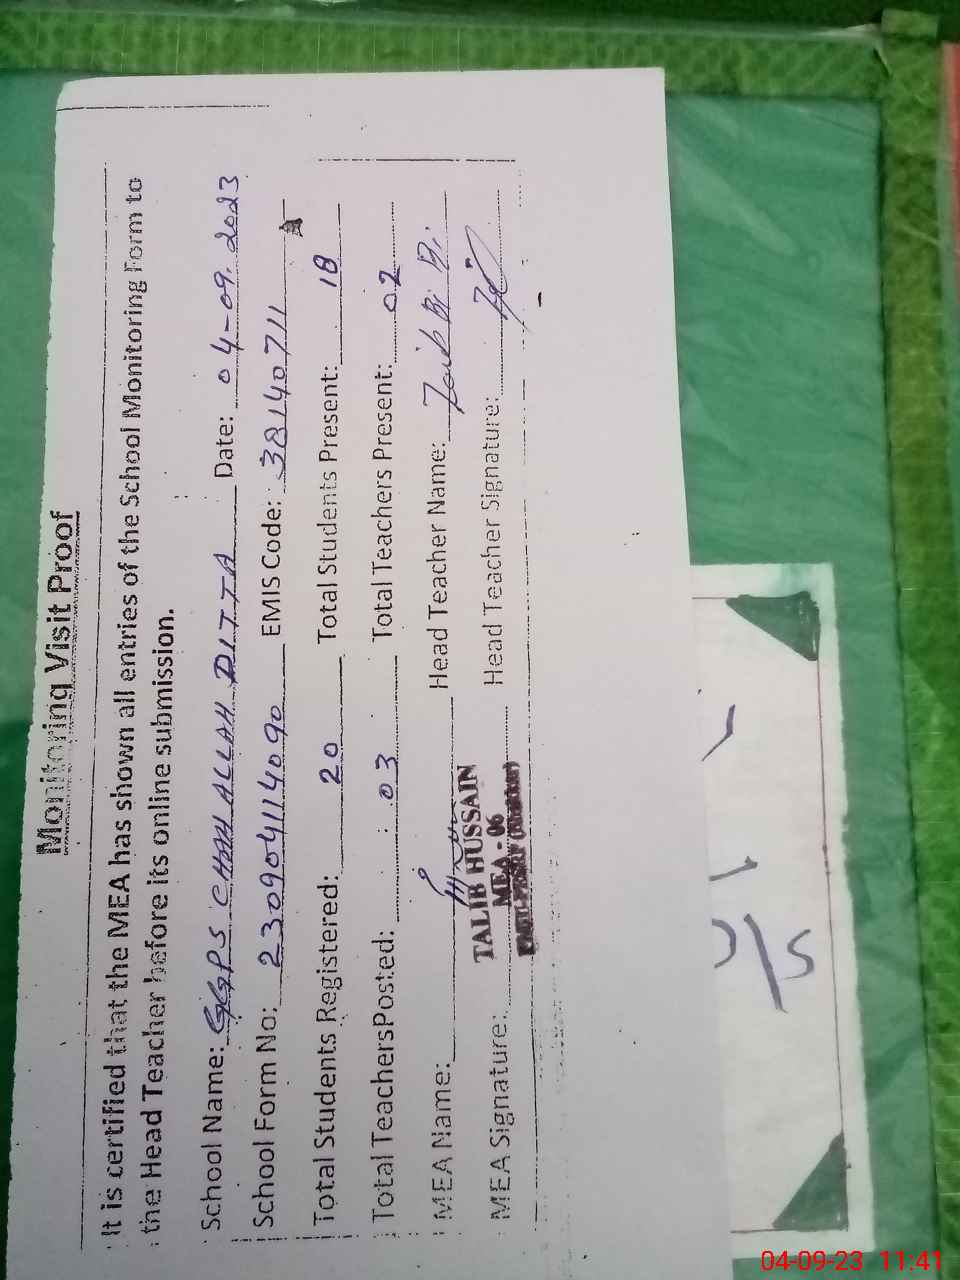 Monitoring Visit Proof
It is certified that the MEA has shown all entries of the School Monitoring Form to
the Head Teacher before its online submission.
School Name: GGPS CHAH ALLAH DITTA Date: 04-09-2023
School Form No: 230904114090 EMIS Code: 38140711
Total Students Registered: 20 Total Students Present: 18
Total Teachers Posted: 03 Total Teachers Present: 02
MEA Name: Head Teacher Name: Bi Bi
TALIB HUSSAIN
MEA - 06
MEA Signature: Head Teacher Signature:
04-09-23 11:41